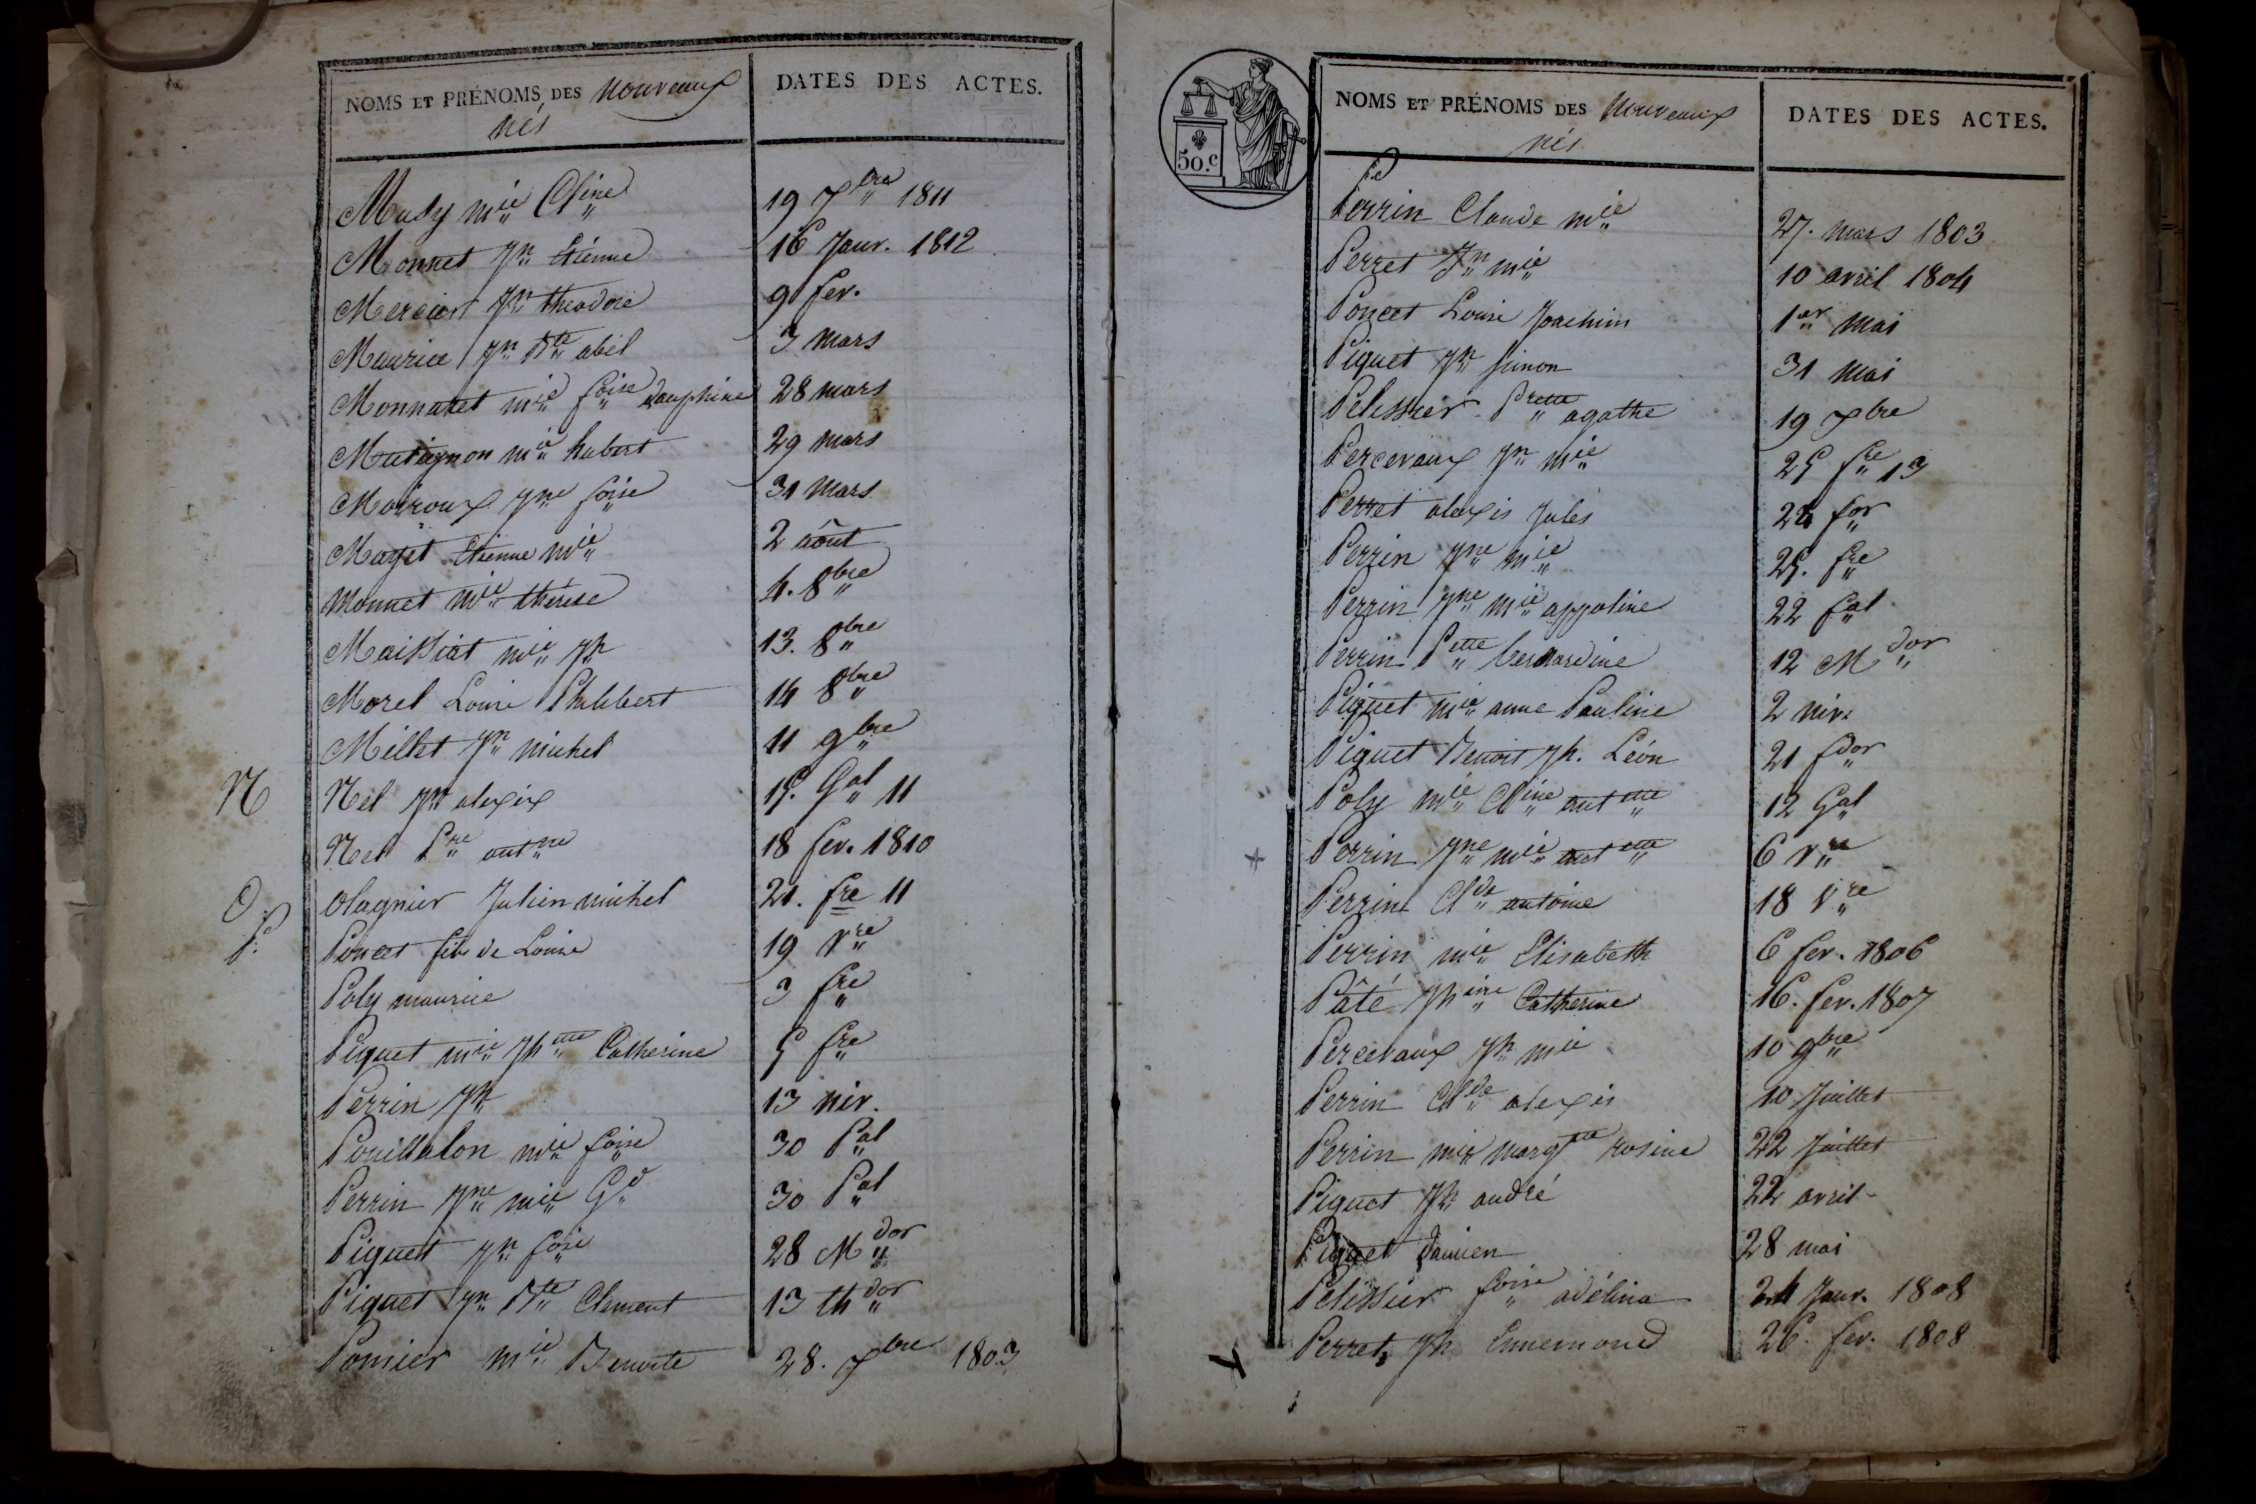 NOMS ET PRÉNOMS DES nouveaux nés
DATES DES ACTES.
Musy mie Cline 19 7bre 1811
Monnet Jn Etienne 16 Janv. 1812
Mercier Jn theodore 9 fev.
Maurice Jn Bte abel 3 mars
Monnaret mie foise dauphine 28 mars
Mutignon mie hubert 29 mars
Moiroux Jne foise 31 mars
Mayet Etienne mie 2 aôut
Monnet mie thérèse 4. 8bre
Maissiat mie Jh 13. 8bre
Morel Louise Philibert 14 8bre
Millet Jn michel 11 9bre
N Nel Jh alexix 15. Gal 11
Nel Pre antne 18 fev. 1810
O Olagnier Julien michel 21. fre 11
P. Poncet fils de Louise 19 vre
Poly maurice 3 fre
Piquet mie Jhtte Catherine 5 fre
Perrin Jh 13 niv.
Pouillalon mie foise 30 Pal
Perrin Jne mie Gd 30 Pal
Piquet Jn foise 28 Mdor
Piquet Jn Bte Clement 13 thdor
Pomier mie Benoite 28. 7bre 1803
50.c
NOMS ET PRÉNOMS DES nouveaux nés
DATES DES ACTES.
Perrin Claude mie 27. mars 1803
Perret Jn mie 10 avril 1804
Poncet Louise Joachim 1er mai
Piquet Jh Simon 31 mai
Pelissier Prette agathe 19 7bre
Percevaux Jn mie 25 fre 13
Perret alexis Jules 24 for
Perrin Jne mie 25. fre
Perrin Jne mie appoline 22 fal
Perrin Pette bernardine 12 Mdor
Piquet mie anne Pauline 2 niv.
Piquet Benoit Jh. Léon 21 fdor
Poly mie Cline anttte 12 Gal
Perrin Jne mie anttte 6 vre
Perrin Clde antoine 18 Vre
Perrin mie Elisabeth 6 fev. 1806
Pâté Jhine Catherine 16. fev. 1807
Percevaux Jh mie 10 9bre
Perrin Clde alexis 10 Juillet
Perrin mie margtte rosine 22 Juillet
Piquet Jh andré 22 avril
Piquet Damien 28 mai
Pelissier foise adélina 24 Janv. 1808
Perret Jh Ennemond 26. fev. 1808